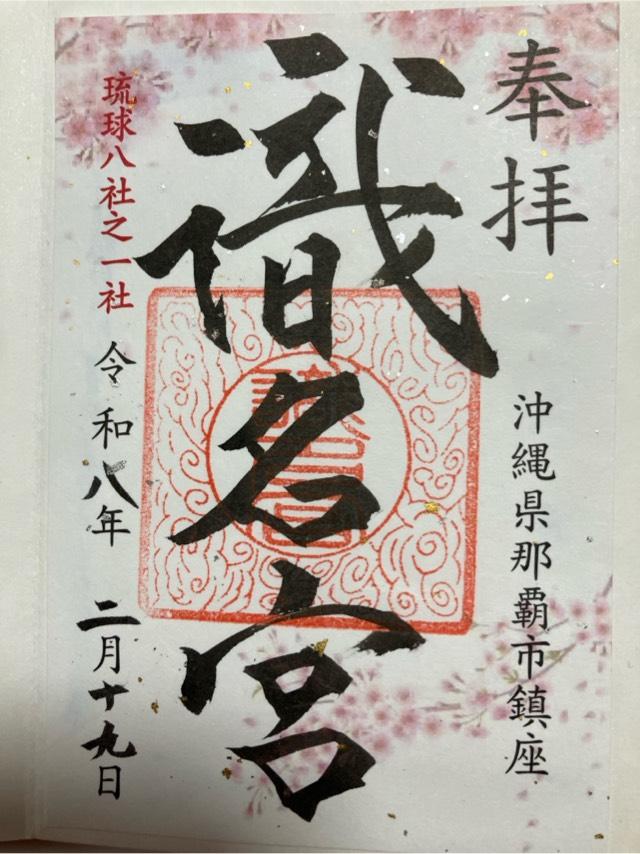 奉拝
沖縄県那覇市鎮座
識名宮
琉球八社之一社
令和八年 二月十九日